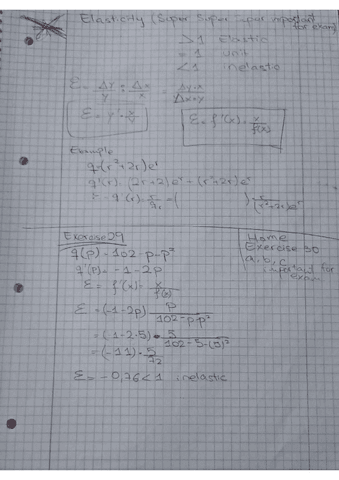 Elasticity (Super Super super important for exam)
>1 Elastic
=1 unit
<1 inelastic
ε = Δy/y : Δx/x = Δy·x/Δx·y
ε = y' · x/y
ε = f'(x) · x/f(x)
Example
q=(r²+2r)eʳ
q'(r) = (2r+2)eʳ + (r²+2r)eʳ
Exercise 29
q(p) = 102-p-p²
q'(p) = -1-2p
ε = f'(x) · x/f(x)
ε = (-1-2p) p/102-p-p²
= (-1-2·5) · 5/102-5-(5)²
= (-11) · 5/72
ε = -0,76 < 1 inelastic
Home
Exercise 30
a, b, c
important for exam